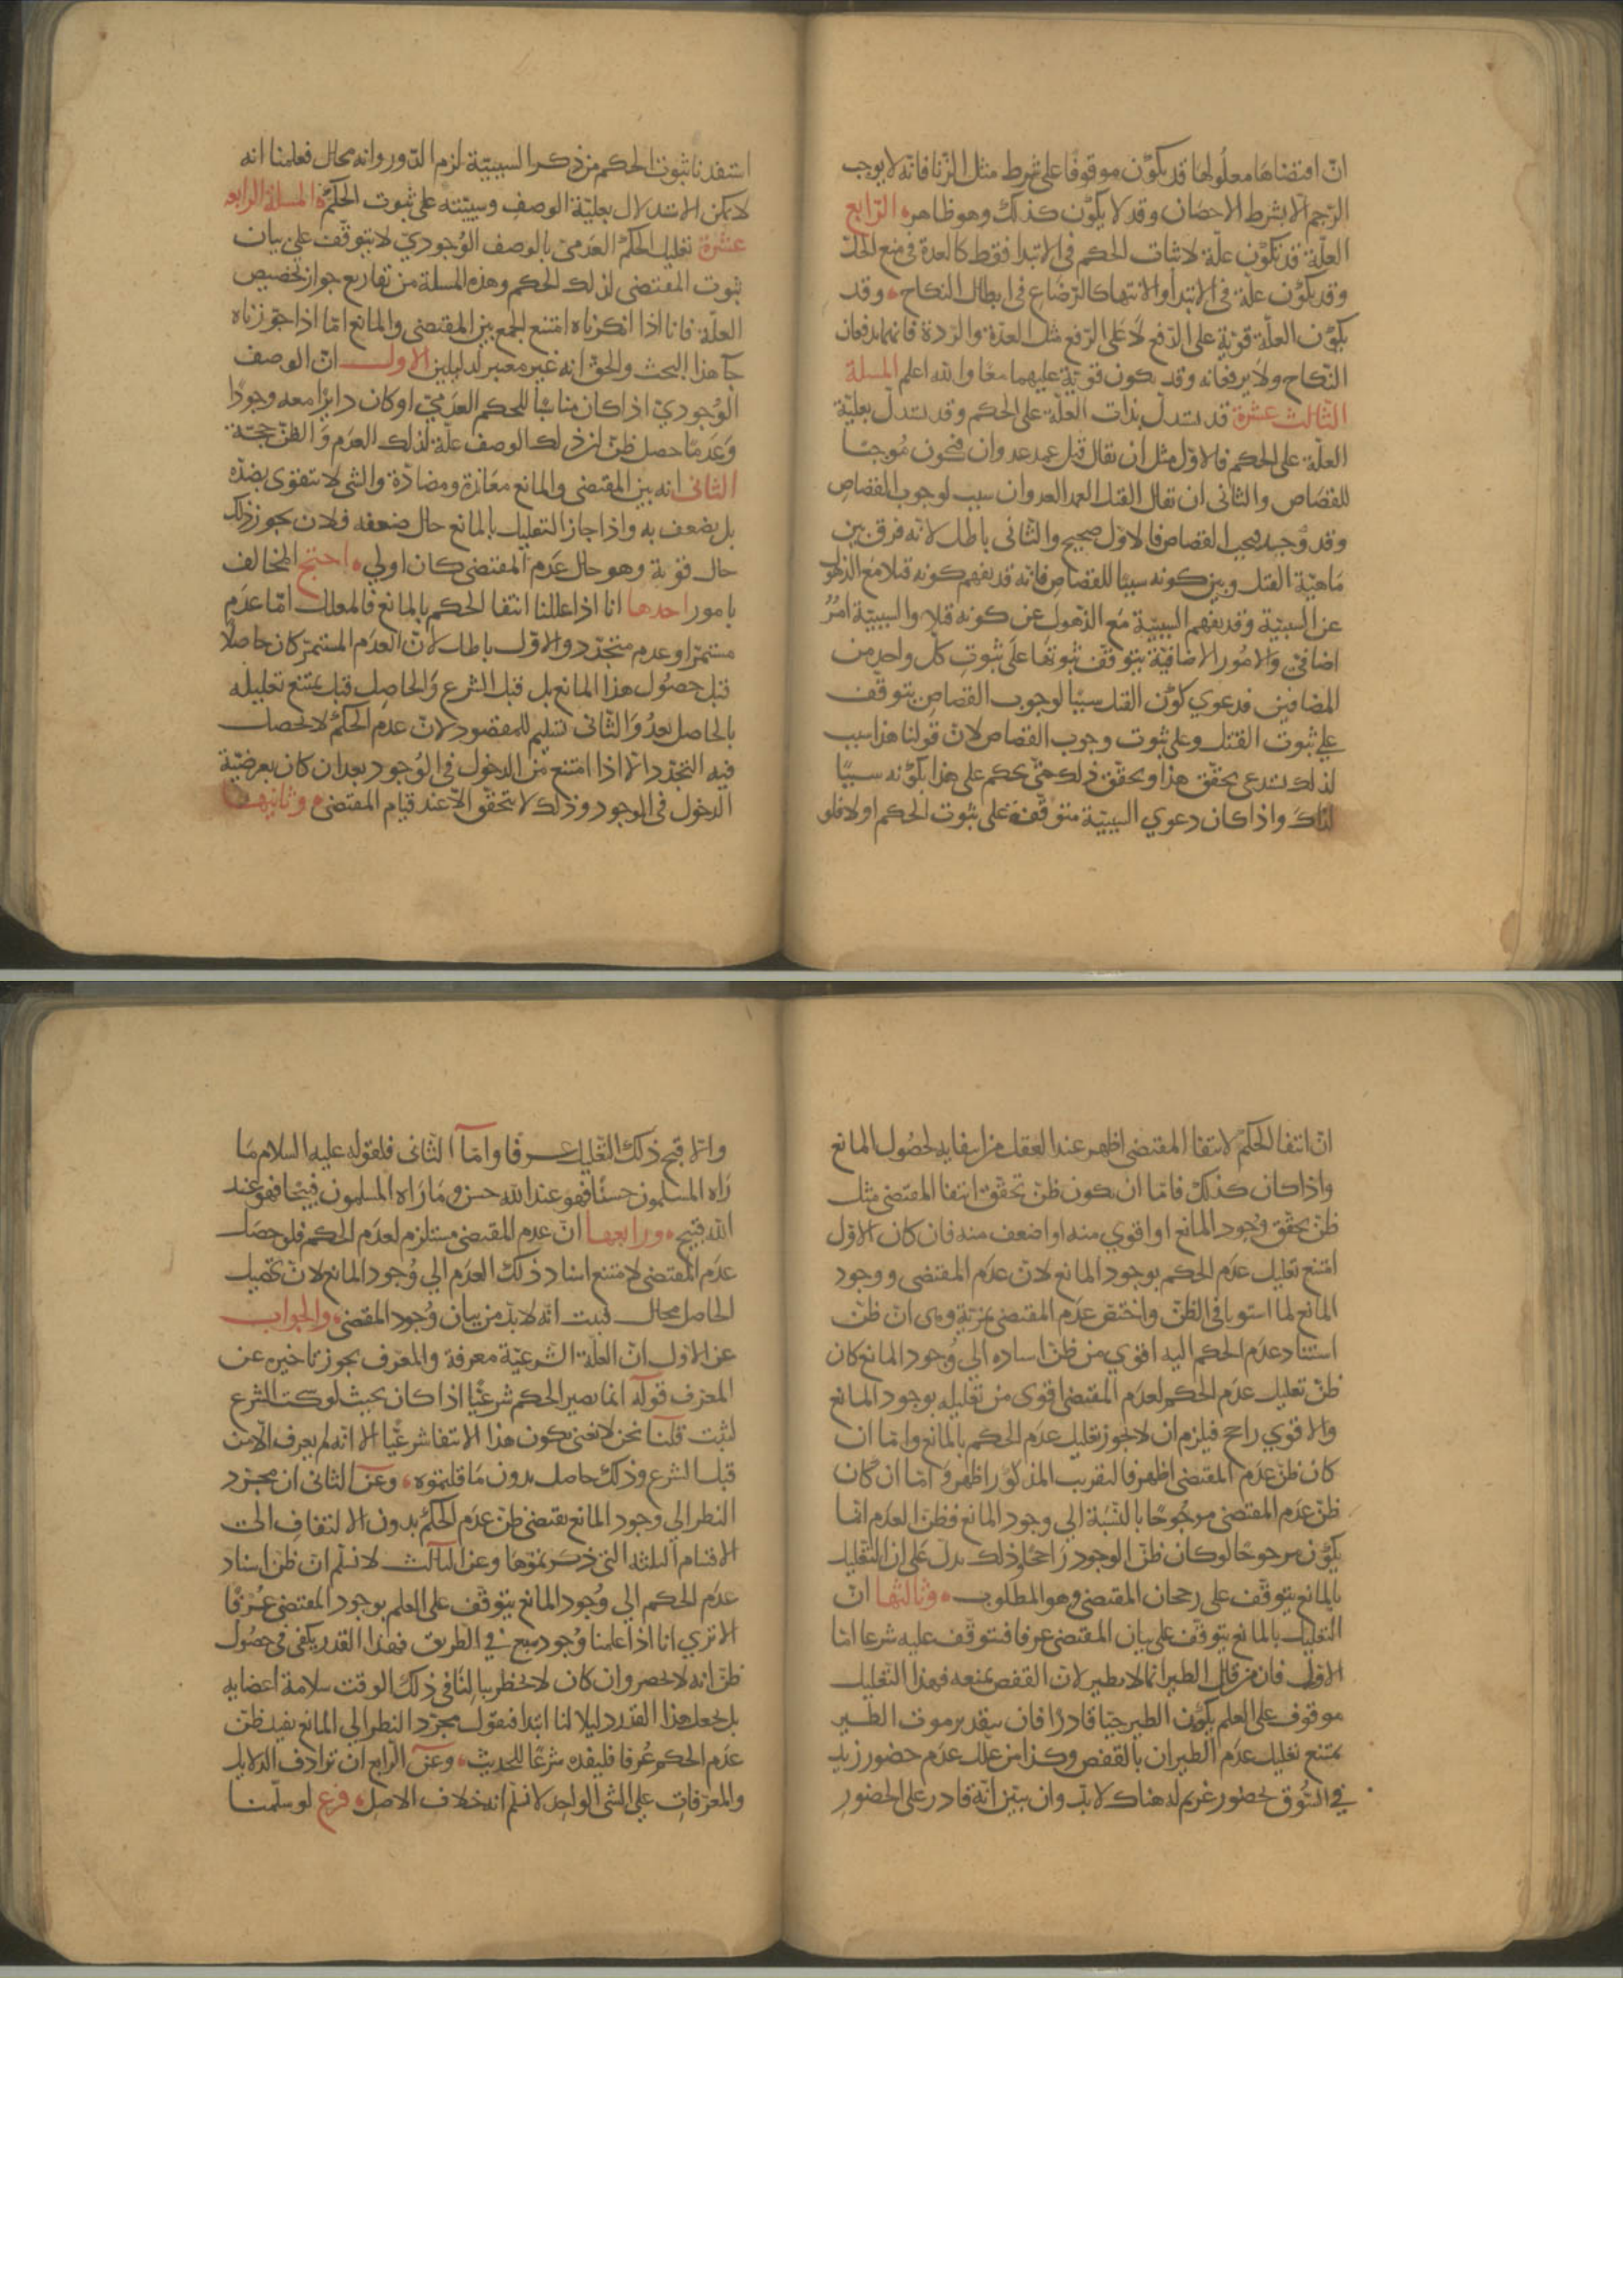 انّ اقتضاها معلولها قد يكون موقوفا على شرط مثل الزنا فانه لا يوجب
الرجم الا بشرط الاحصان وقد لا يكون كذلك وهو ظاهر الرابع
العلّة قد تكون علّة لاثبات الحكم في الابتدا فقط كالعدة في منع الحل
وقد يكون علّة في الابتدا والانتها كالرضاع في ابطال النكاح وقد
يكون العلّة قوية على الدفع لا على الرفع مثل العدة والردة فانهما يدفعان
النكاح ولا يرفعانه وقد يكون قوية عليهما معا والله اعلم المسلة
الثالث عشرة قد يستدل بذات العلّة على الحكم وقد يستدل بعليّة
العلّة على الحكم فالاول مثل ان يقال قتل عمد عدوان فيكون موجبا
للقصاص والثاني ان يقال القتل العمد العدوان سبب لوجوب القصاص
وقد وجد فيجب القصاص فالاول صحيح والثاني باطل لانه فرق بين
ماهيّة القتل وبين كونه سببا للقصاص فانه قد يفهم كونه قتلا مع الذهول
عن السببيّة وقد يفهم السببيّة مع الذهول عن كونه قتلا والسببيّة امر
اضافي والامور الاضافيّة يتوقف ثبوتها على ثبوت كل واحد من
المضافين فدعوي كون القتل سببا لوجوب القصاص يتوقف
علي ثبوت القتل وعلى ثبوت وجوب القصاص لان قولنا هذا سبب
لذلك يستدعي تحقق هذا وتحقق ذلك حتى يحكم على هذا بكونه سببا
لذاك واذا كان دعوي السببيّة متوقفة على ثبوت الحكم اولا فلو
استفدنا ثبوت الحكم من ذكر السببيّة لزم الدور وانه محال فعلمنا انه
لا يمكن الاستدلال بعليّة الوصف وسببيته على ثبوت الحكم المسلة الرابعه
عشرة تعليل الحكم العدمي بالوصف الوجودي لا يتوقف على بيان
ثبوت المقتضى لذلك الحكم وهذه المسلة من تفاريع جواز تخصيص
العلّة فانا اذا انكرناه امتنع الجمع بين المقتضى والمانع امّا اذا جوزناه
جآ هذا البحث والحق انه غير معتبر لدليلين الاول ان الوصف
الوجودي اذا كان مناسبا للحكم العدمي او كان دايرا معه وجودا
وعدما حصل ظن ان ذلك الوصف علّة لذلك العدم والظن حجّة
الثاني انه بين المقتضى والمانع معاندة ومضادّة والشي لا يتقوى بضدّه
بل يضعف به واذا جاز التعليل بالمانع حال ضعفه فلان يجوز ذلك
حال قوته وهو حال عدم المقتضى كان اولي احتج المخالف
بامور احدها انا اذا عللنا انتفا الحكم بالمانع فالمعلل امّا عدم
مستمر او عدم متجدّد والاول باطل لان العدم المستمر كان حاصلا
قبل حصول هذا المانع بل قبل الشرع والحاصل قبل يمتنع تعليله
بالحاصل بعد والثاني تسليم للمقصود لان عدم الحكم لا يحصل
فيه التجدد الا اذا امتنع من الدخول في الوجود بعد ان كان بعرضيّة
الدخول في الوجود وذلك لا يتحقق الا عند قيام المقتضى وثانيها
انّ انتفا الحكم لانتفا المقتضى اظهر عند العقل من انتفايه لحصول المانع
واذا كان كذلك فامّا ان يكون ظن تحقق انتفا المقتضى مثل
ظن تحقق وجود المانع او اقوي منه او اضعف منه فان كان الاول
امتنع تعليل عدم الحكم بوجود المانع لان عدم المقتضى ووجود
المانع لما استويا في الظن واختص عدم المقتضى بمزية وهي ان ظن
استناد عدم الحكم اليه اقوي من ظن اسناده الي وجود المانع كان
ظن تعليل عدم الحكم لعدم المقتضى اقوى من تعليله بوجود المانع
والاقوي راجح فيلزم ان لا يجوز تعليل عدم الحكم بالمانع وامّا ان
كان ظن عدم المقتضى اظهر فالتقريب المذكور اظهر وامّا ان كان
ظن عدم المقتضى مرجوحا بالنسبة الي وجود المانع فظن العدم انما
يكون مرجوحا لو كان ظن الوجود راجحا وذلك يدل على ان التعليل
بالمانع يتوقف على رجحان المقتضى وهو المطلوب وثالثها ان
التعليل بالمانع يتوقف على بيان المقتضى عرفا فيتوقف عليه شرعا امّا
الاول فان من قال الطير انما لا يطير لان القفص يمنعه فهذا التعليل
موقوف على العلم بكون الطير حيّا قادرا فان بتقدير موت الطير
يمتنع تعليل عدم الطيران بالقفص وكذا من علل عدم حضور زيد
في السوق لحضور غريم له هناك لا بد وان يبيّن انه قادر على الحضور
والا قبح ذلك التعليل عرفا وامّا الثاني فلقوله عليه السلام ما
راه المسلمون حسنا فهو عند الله حسن وما راه المسلمون قبيحا فهو عند
الله قبيح ورابعها انّ عدم المقتضى مستلزم لعدم الحكم فلو حصل
عدم المقتضى لامتنع اسناد ذلك العدم الي وجود المانع لان تحصيل
الحاصل محال فثبت انّه لا بد من بيان وجود المقتضى والجواب
عن الاول انّ العلّة الشرعيّة معرفة والمعرف يجوز تاخيره عن
المعرف قوله انما يصير الحكم شرعيّا اذا كان بحيث لو سكت الشرع
لثبت قلنا نحن لا نعني بكون هذا الانتفا شرعيّا الا انّه لم يعرف الا من
قبل الشرع وذلك حاصل بدون ما قلتموه وعن الثاني ان مجرّد
النظر الي وجود المانع يقتضى ظن عدم الحكم بدون الالتفات الي
الاقسام الثلثه التي ذكرتموها وعن الثالث لا نسلم ان ظن اسناد
عدم الحكم الي وجود المانع يتوقف على العلم بوجود المقتضى عرفا
الا تري انا اذا علمنا وجود سبع في الطريق فهذا القدر يكفي في حصول
ظن انه لا يحضر وان كان لا يخطر ببالنا في ذلك الوقت سلامة اعضايه
بل نجعل هذا القدر دليلا لنا ابتدا فنقول مجرّد النظر الي المانع يفيد ظن
عدم الحكم عرفا فليفده شرعا للحديث وعن الرابع ان ترادف الدلايل
والمعرّفات علي الشي الواحد لا نسلم انه خلاف الاصل فرع لو سلّمنا